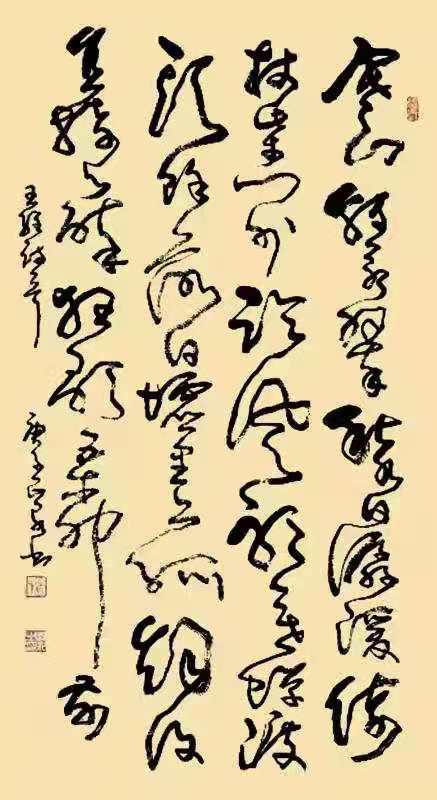 寒山轉蒼翠秋水日潺湲倚
杖柴門外臨風聽暮蟬渡
頭餘落日墟里上孤烟復
值接輿醉狂歌五柳前
王維詩一首 庚子 書